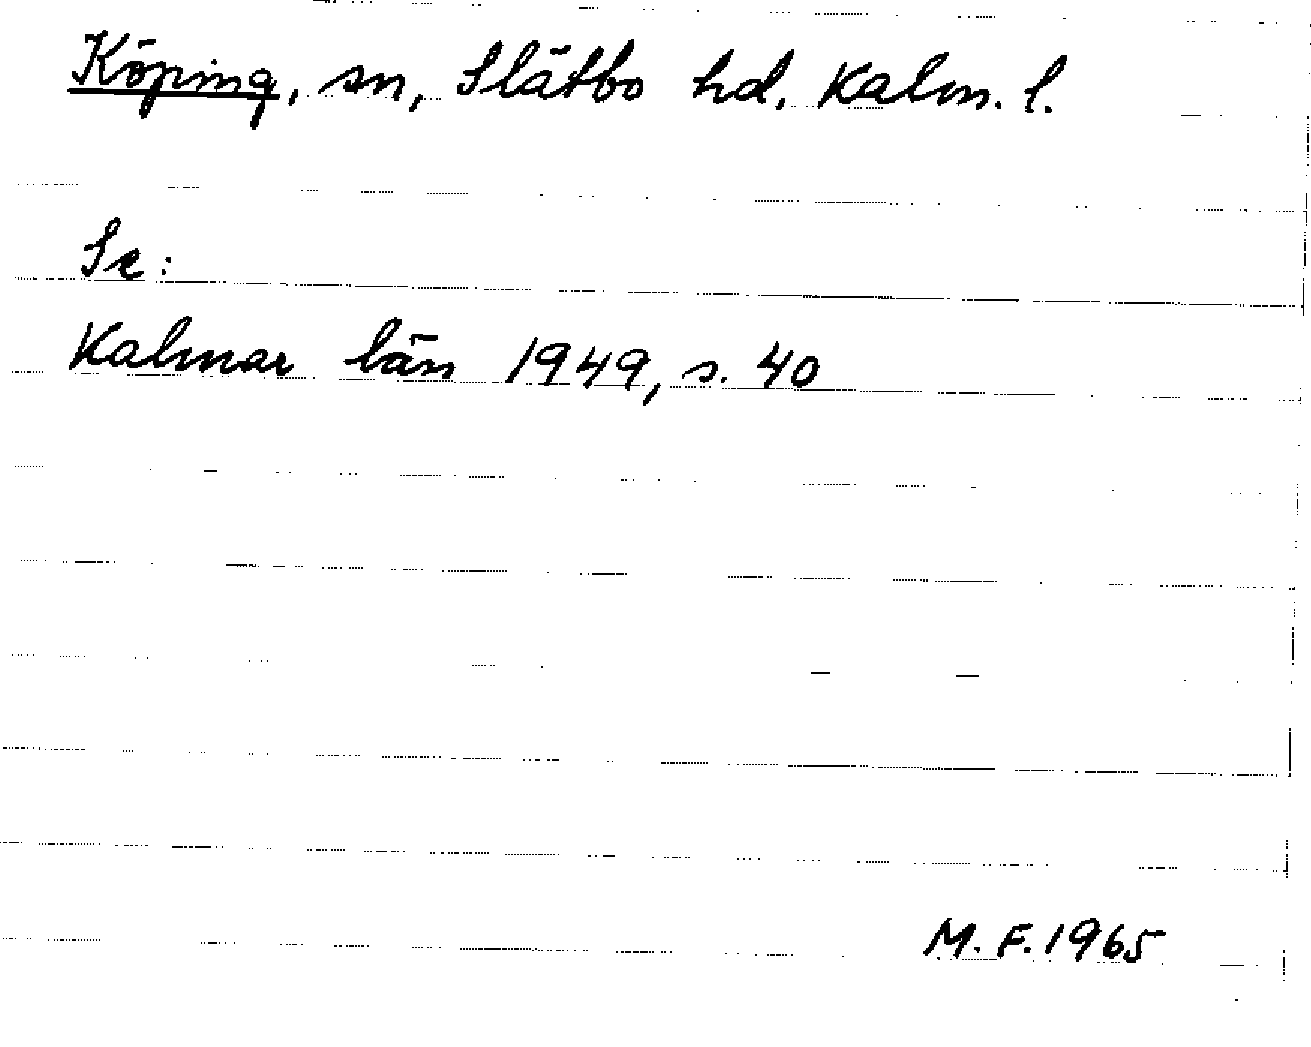 Köping, sn, Slätbo hd, Kalm. l.
Se:
Kalmar län 1949, s. 40
M.F. 1965